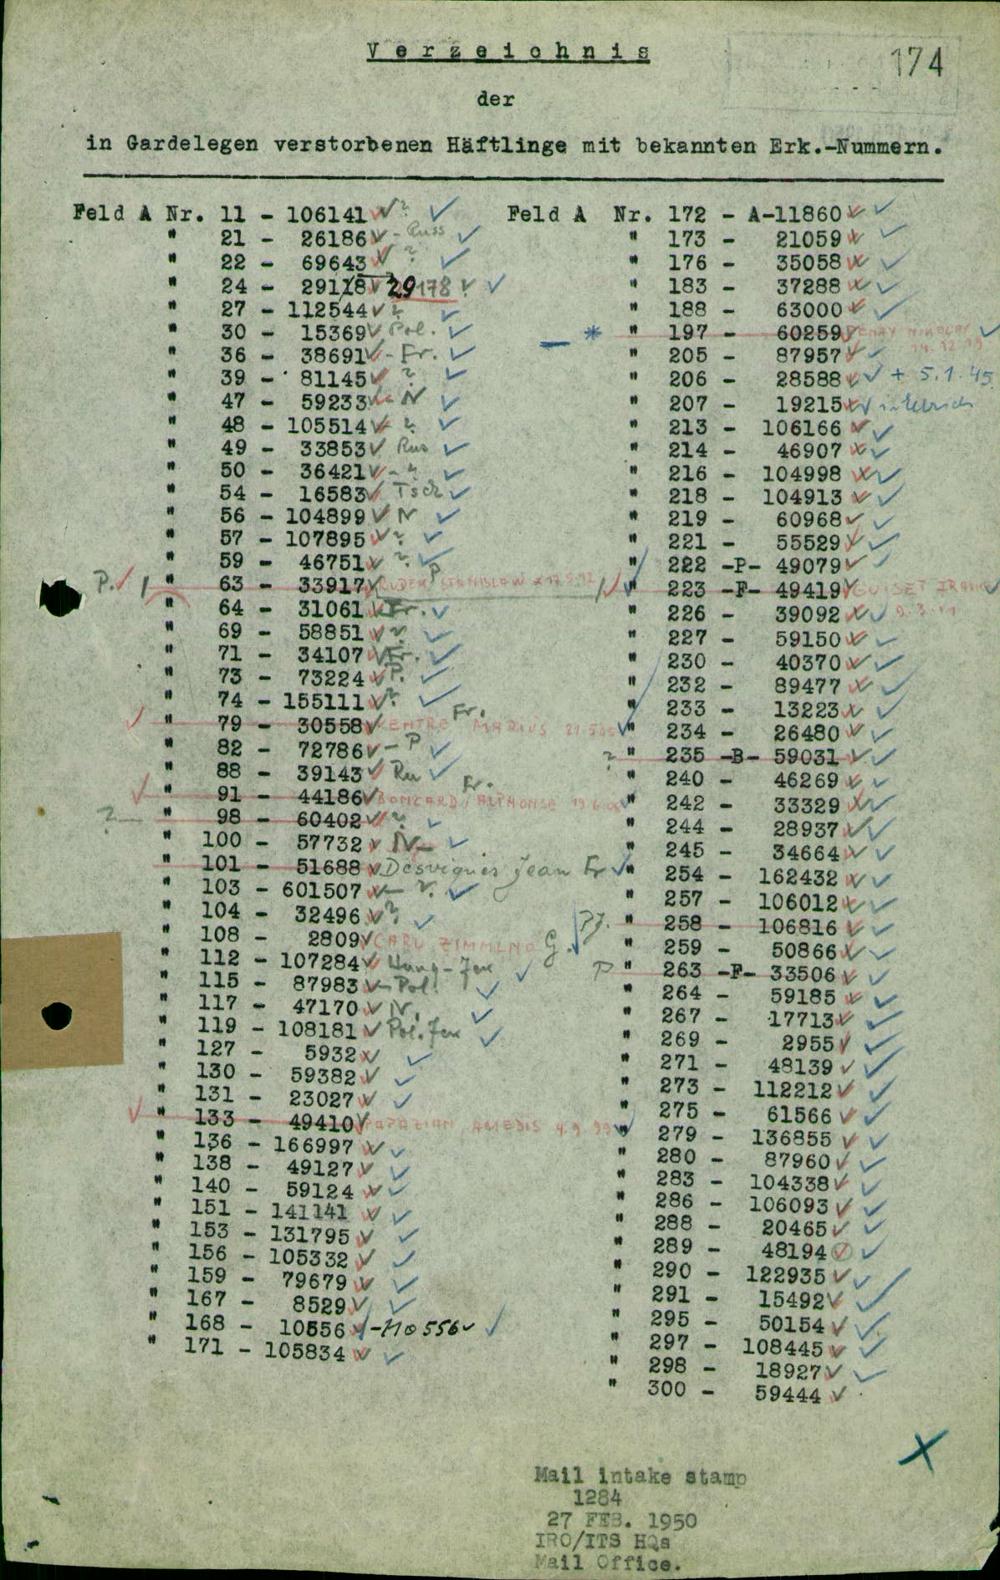 Verzeichnis
174
der
in Gardelegen verstorbenen Häftlinge mit bekannten Erk.-Nummern.
Feld A Nr. 11 - 106141 ?
" 21 - 26186 - Russ
" 22 - 69643 ?
" 24 - 29118 29178
" 27 - 112544 ?
" 30 - 15369 Pol.
" 36 - 38691 - Fr.
" 39 - 81145 ?
" 47 - 59233 N
" 48 - 105514 ?
" 49 - 33853 Rus
" 50 - 36421 - ?
" 54 - 16583 Tsch
" 56 - 104899 N
" 57 - 107895 ?
" 59 - 46751 ?
P. " 63 - 33917 STANISLAW P
" 64 - 31061 Fr.
" 69 - 58851 ?
" 71 - 34107 Fr.
" 73 - 73224 P.
" 74 - 155111 ?
" 79 - 30558 MARIUS Fr.
" 82 - 72786 - P
" 88 - 39143 Ru
" 91 - 44186 ALPHONSE Fr.
? " 98 - 60402 ?
" 100 - 57732 N
" 101 - 51688 Desvignes Jean Fr
" 103 - 601507 - ?
" 104 - 32496 ?
" 108 - 2809 CARL ZIMMLNO G.
" 112 - 107284 Ung-Jex
" 115 - 87983 - Pol.
" 117 - 47170 N.
" 119 - 108181 Pol.Jex
" 127 - 5932
" 130 - 59382
" 131 - 23027
" 133 - 49410 PAPAZIAN, AMEDIS 4.9.99
" 136 - 166997
" 138 - 49127
" 140 - 59124
" 151 - 141141
" 153 - 131795
" 156 - 105332
" 159 - 79679
" 167 - 8529
" 168 - 10556 - 110556
" 171 - 105834
Feld A Nr. 172 - A-11860
" 173 - 21059
" 176 - 35058
" 183 - 37288
" 188 - 63000
* " 197 - 60259
" 205 - 87957
" 206 - 28588 + 5.1.45
" 207 - 19215
" 213 - 106166
" 214 - 46907
" 216 - 104998
" 218 - 104913
" 219 - 60968
" 221 - 55529
" 222 -P- 49079
" 223 -F- 49419
" 226 - 39092
" 227 - 59150
" 230 - 40370
" 232 - 89477
" 233 - 13223
" 234 - 26480
? " 235 -B- 59031
" 240 - 46269
" 242 - 33329
" 244 - 28937
" 245 - 34664
" 254 - 162432
" 257 - 106012
" 258 - 106816
" 259 - 50866
P " 263 -F- 33506
" 264 - 59185
" 267 - 17713
" 269 - 2955
" 271 - 48139
" 273 - 112212
" 275 - 61566
" 279 - 136855
" 280 - 87960
" 283 - 104338
" 286 - 106093
" 288 - 20465
" 289 - 48194
" 290 - 122935
" 291 - 15492
" 295 - 50154
" 297 - 108445
" 298 - 18927
" 300 - 59444
Mail intake stamp
1284
27 FEB. 1950
IRO/ITS HQs
Mail Office.